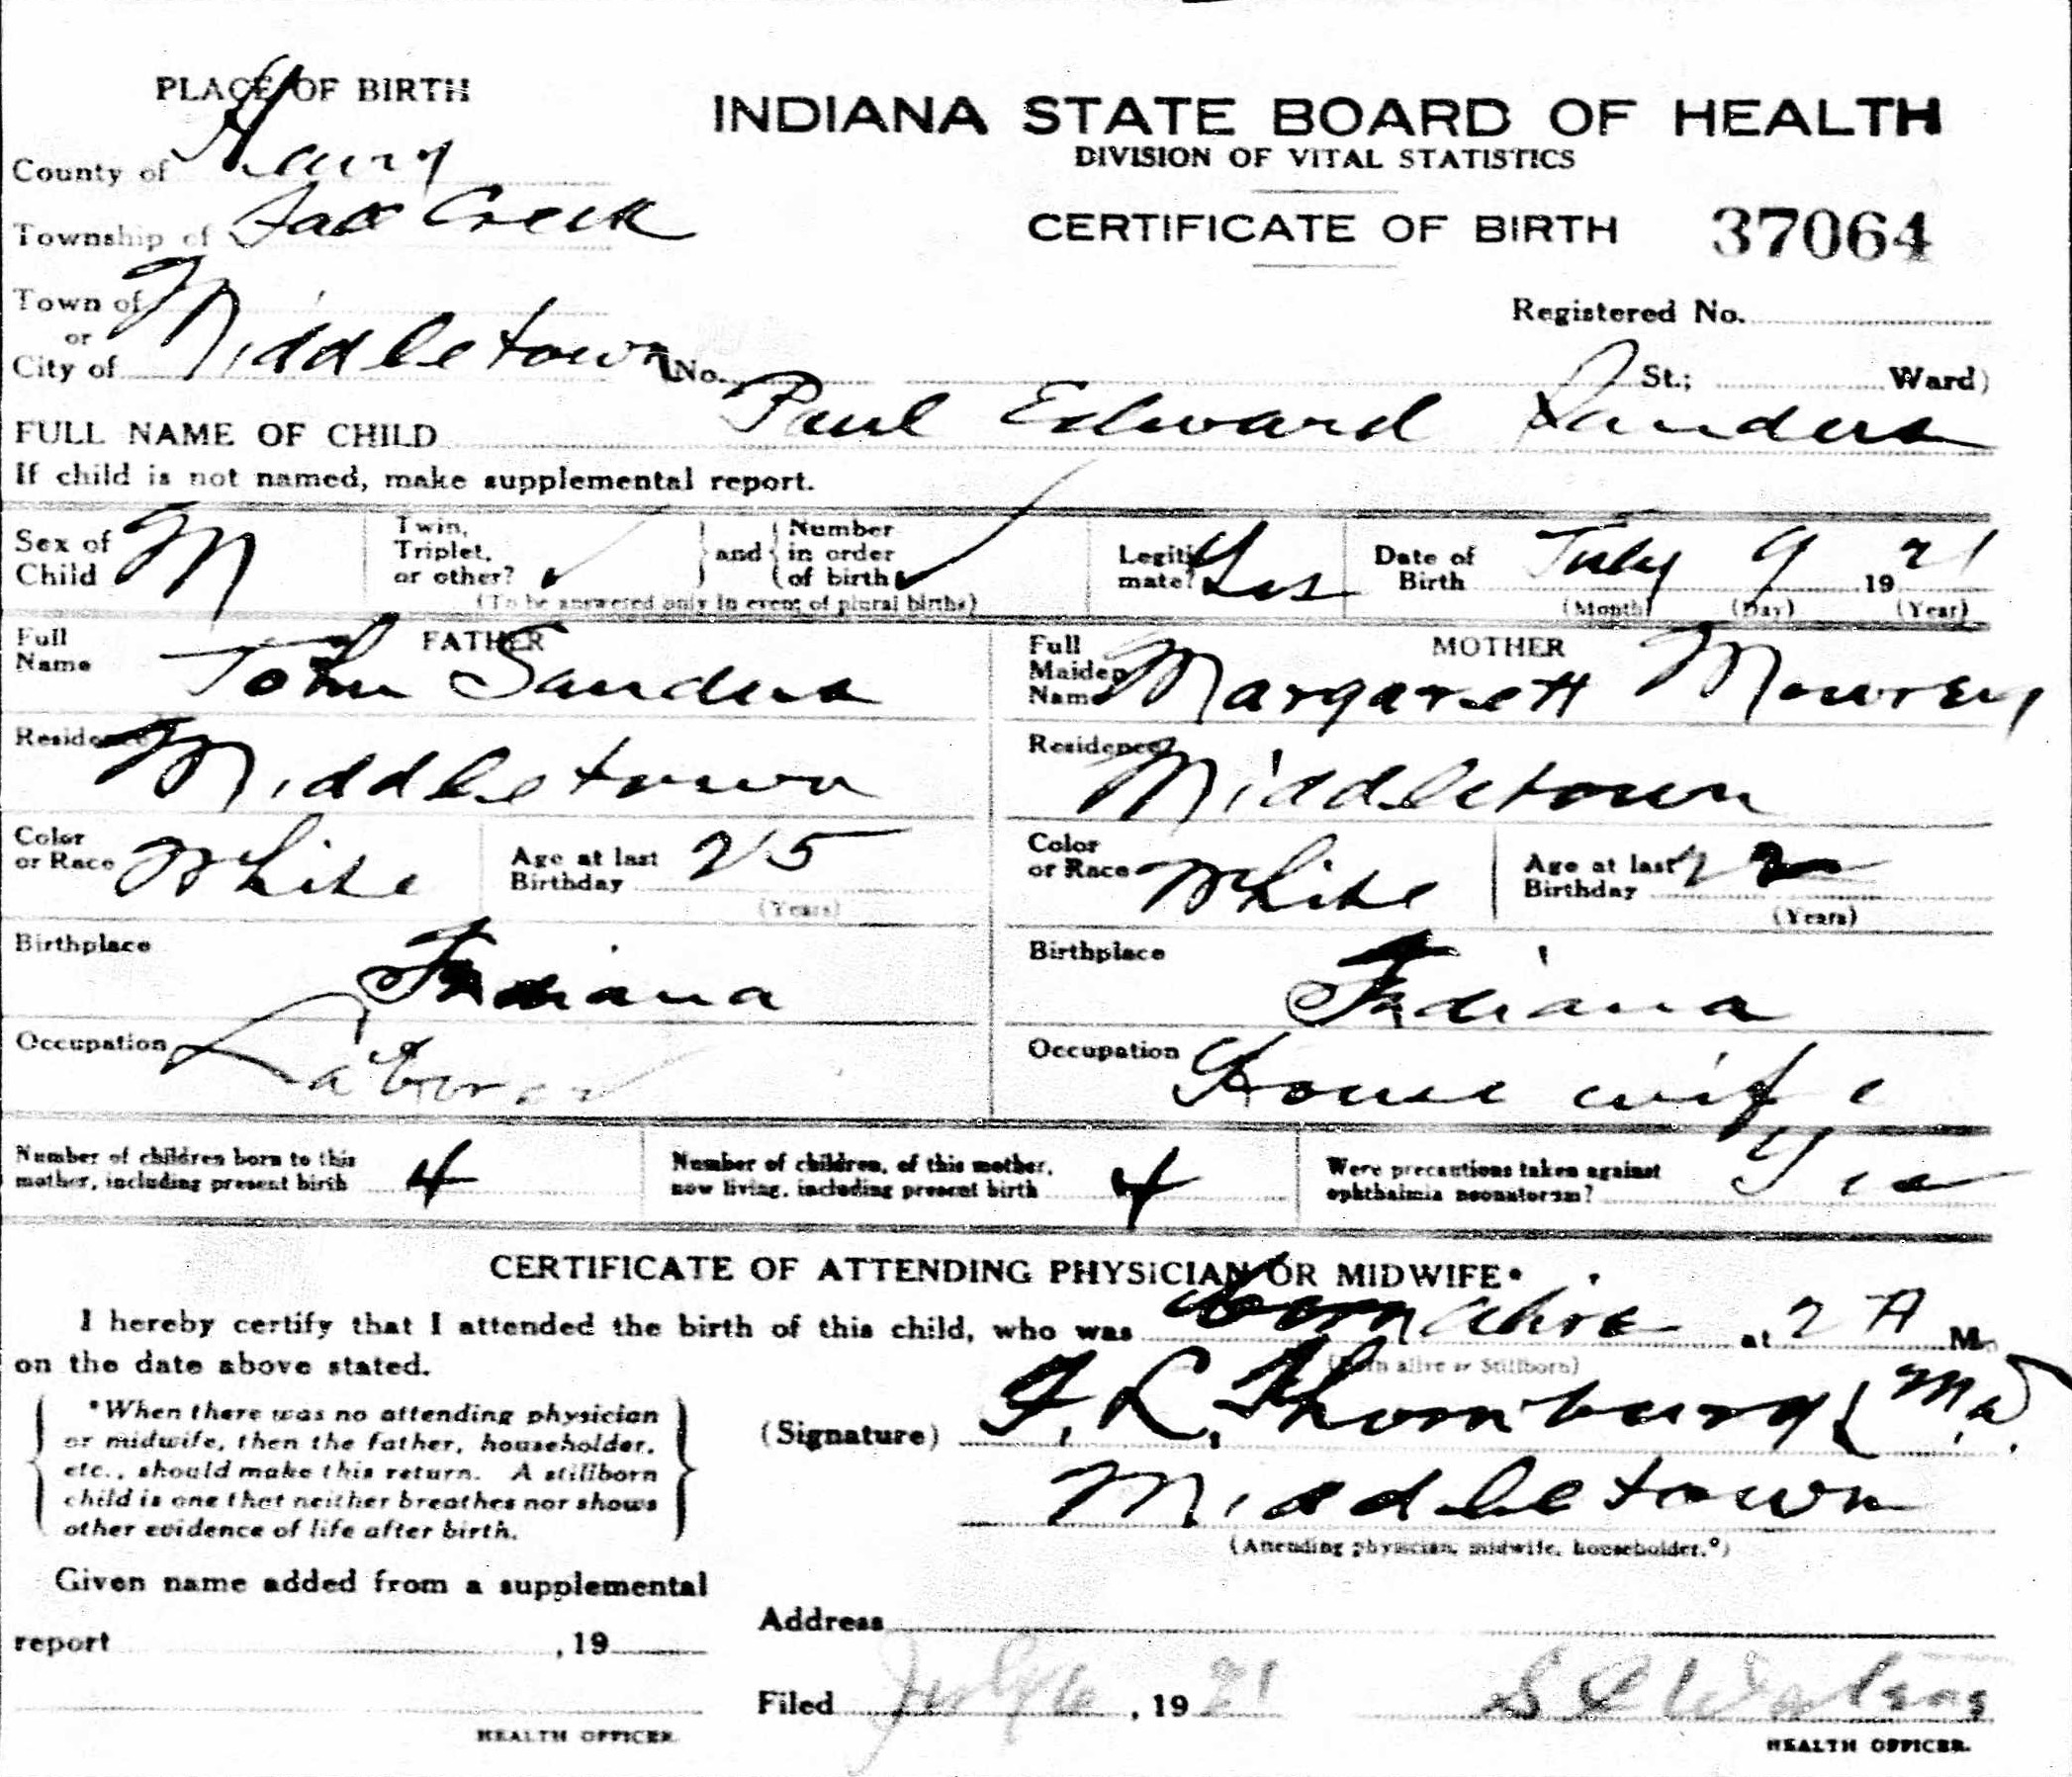 PLACE OF BIRTH
INDIANA STATE BOARD OF HEALTH
DIVISION OF VITAL STATISTICS
County of Henry
Township of Fall Creek
CERTIFICATE OF BIRTH 37064
Town of
or
City of Middletown
Registered No.
(No. St.; Ward)
FULL NAME OF CHILD Paul Edward Sanders
If child is not named, make supplemental report.
Sex of Child M
Twin, Triplet, or other? ✓ and Number in order of birth ✓
(To be answered only in event of plural births)
Legitimate? Yes
Date of Birth July 9 1921
(Month) (Day) (Year)
FATHER
Full Name John Sanders
MOTHER
Full Maiden Name Margarett Mowrey
Residence Middletown
Residence Middletown
Color or Race White
Age at last Birthday 25
(Years)
Color or Race White
Age at last Birthday 22
(Years)
Birthplace Indiana
Birthplace Indiana
Occupation Laborer
Occupation House wife
Number of children born to this mother, including present birth 4
Number of children, of this mother, now living, including present birth 4
Were precautions taken against ophthalmia neonatorum? Yes
CERTIFICATE OF ATTENDING PHYSICIAN OR MIDWIFE*
I hereby certify that I attended the birth of this child, who was born alive at 2 A M.
(Born alive or Stillborn)
on the date above stated.
*When there was no attending physician
or midwife, then the father, householder,
etc., should make this return. A stillborn
child is one that neither breathes nor shows
other evidence of life after birth.
(Signature) F. L. Thornburg M.D.
Middletown
(Attending physician, midwife, householder.*)
Given name added from a supplemental
report , 19
HEALTH OFFICER.
Address
Filed July , 1921
HEALTH OFFICER.